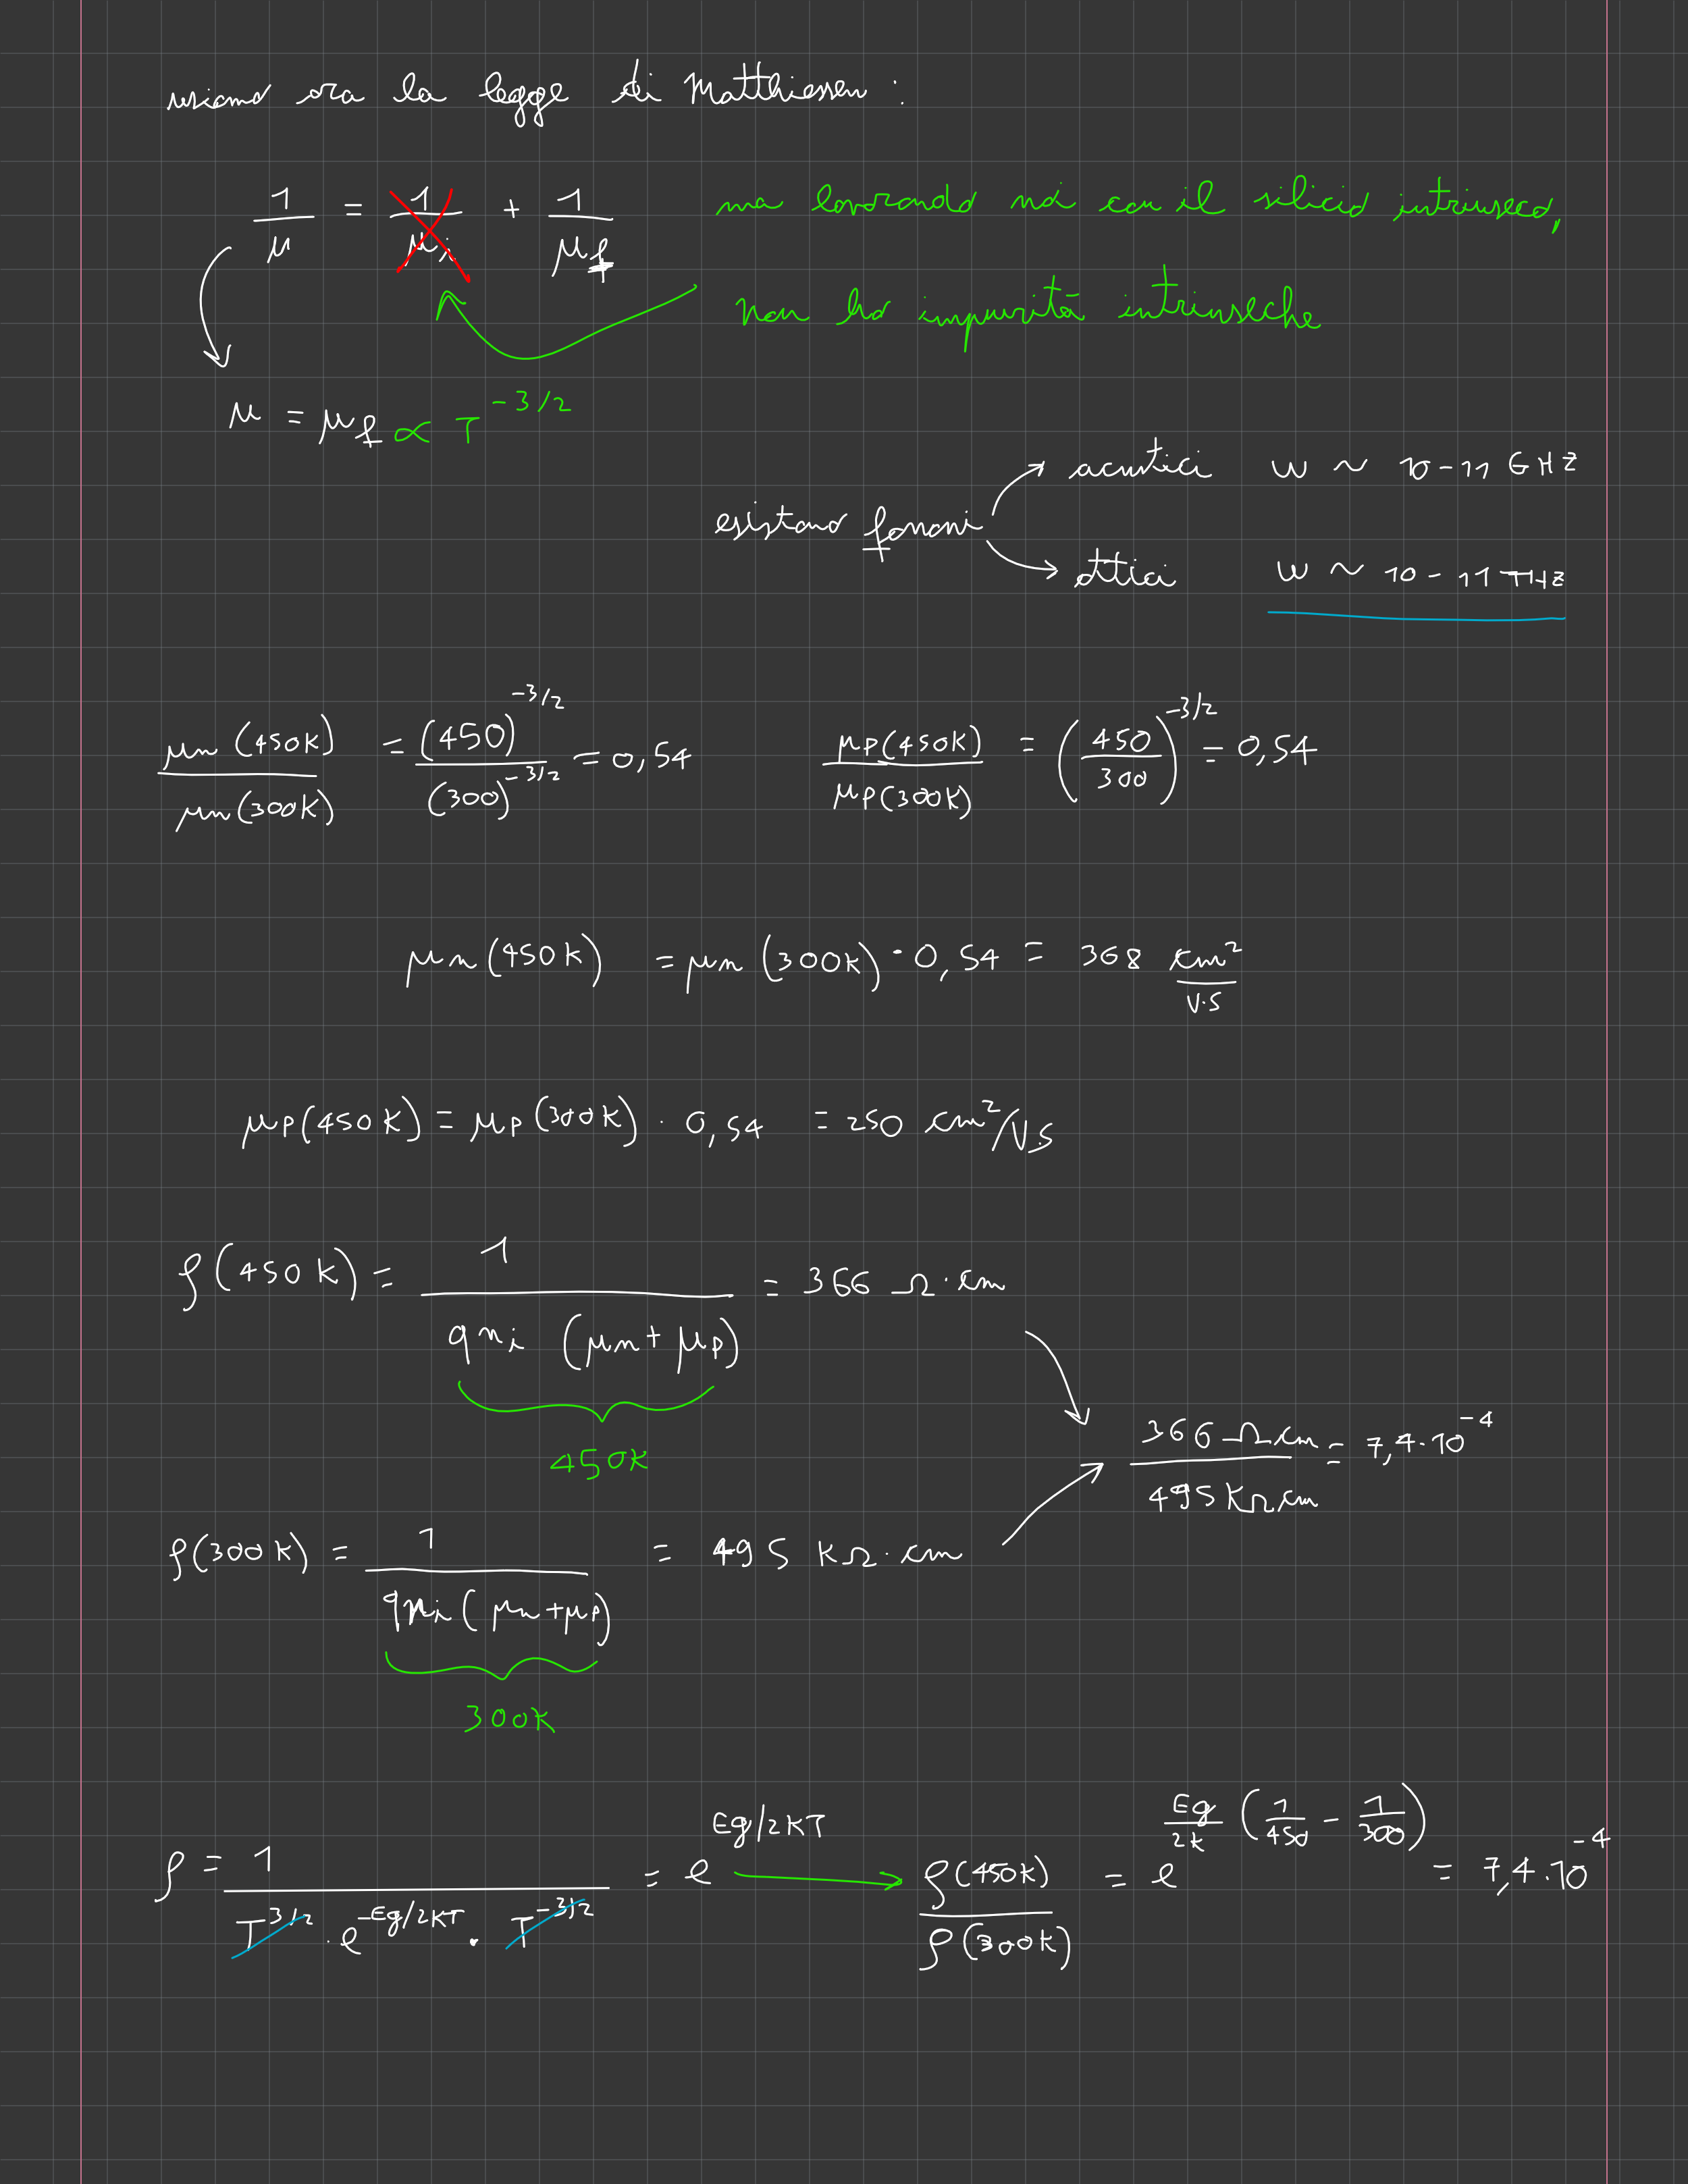 usiamo ora la legge di Matthiessen :
1/μ = 1/μi + 1/μf
ma lavorando noi con il silicio intrinseco,
non ho impurità intrinseche
μ = μf ∝ T^-3/2
esistono fononi
acustici ω ~ 10-11 GHZ
ottici ω ~ 10-11 THZ
μn(450K)/μn(300K) = (450)^-3/2/(300)^-3/2 = 0,54
μp(450K)/μp(300K) = (450/300)^-3/2 = 0,54
μn(450K) = μn(300K) · 0,54 = 368 cm²/V·s
μp(450K) = μp(300K) · 0,54 = 250 cm²/V.s
ρ(450K) = 1/qni (μn + μp) = 366 Ω·cm
450K
366 Ω cm/495 KΩ cm = 7,4·10^-4
ρ(300K) = 1/qni(μn+μp) = 495 KΩ·cm
300K
ρ = 1/T^3/2 · e^-Eg/2KT · T^-3/2 = e^Eg/2KT → ρ(450K)/ρ(300K) = e^Eg/2K (1/450 - 1/300) = 7,4·10^-4